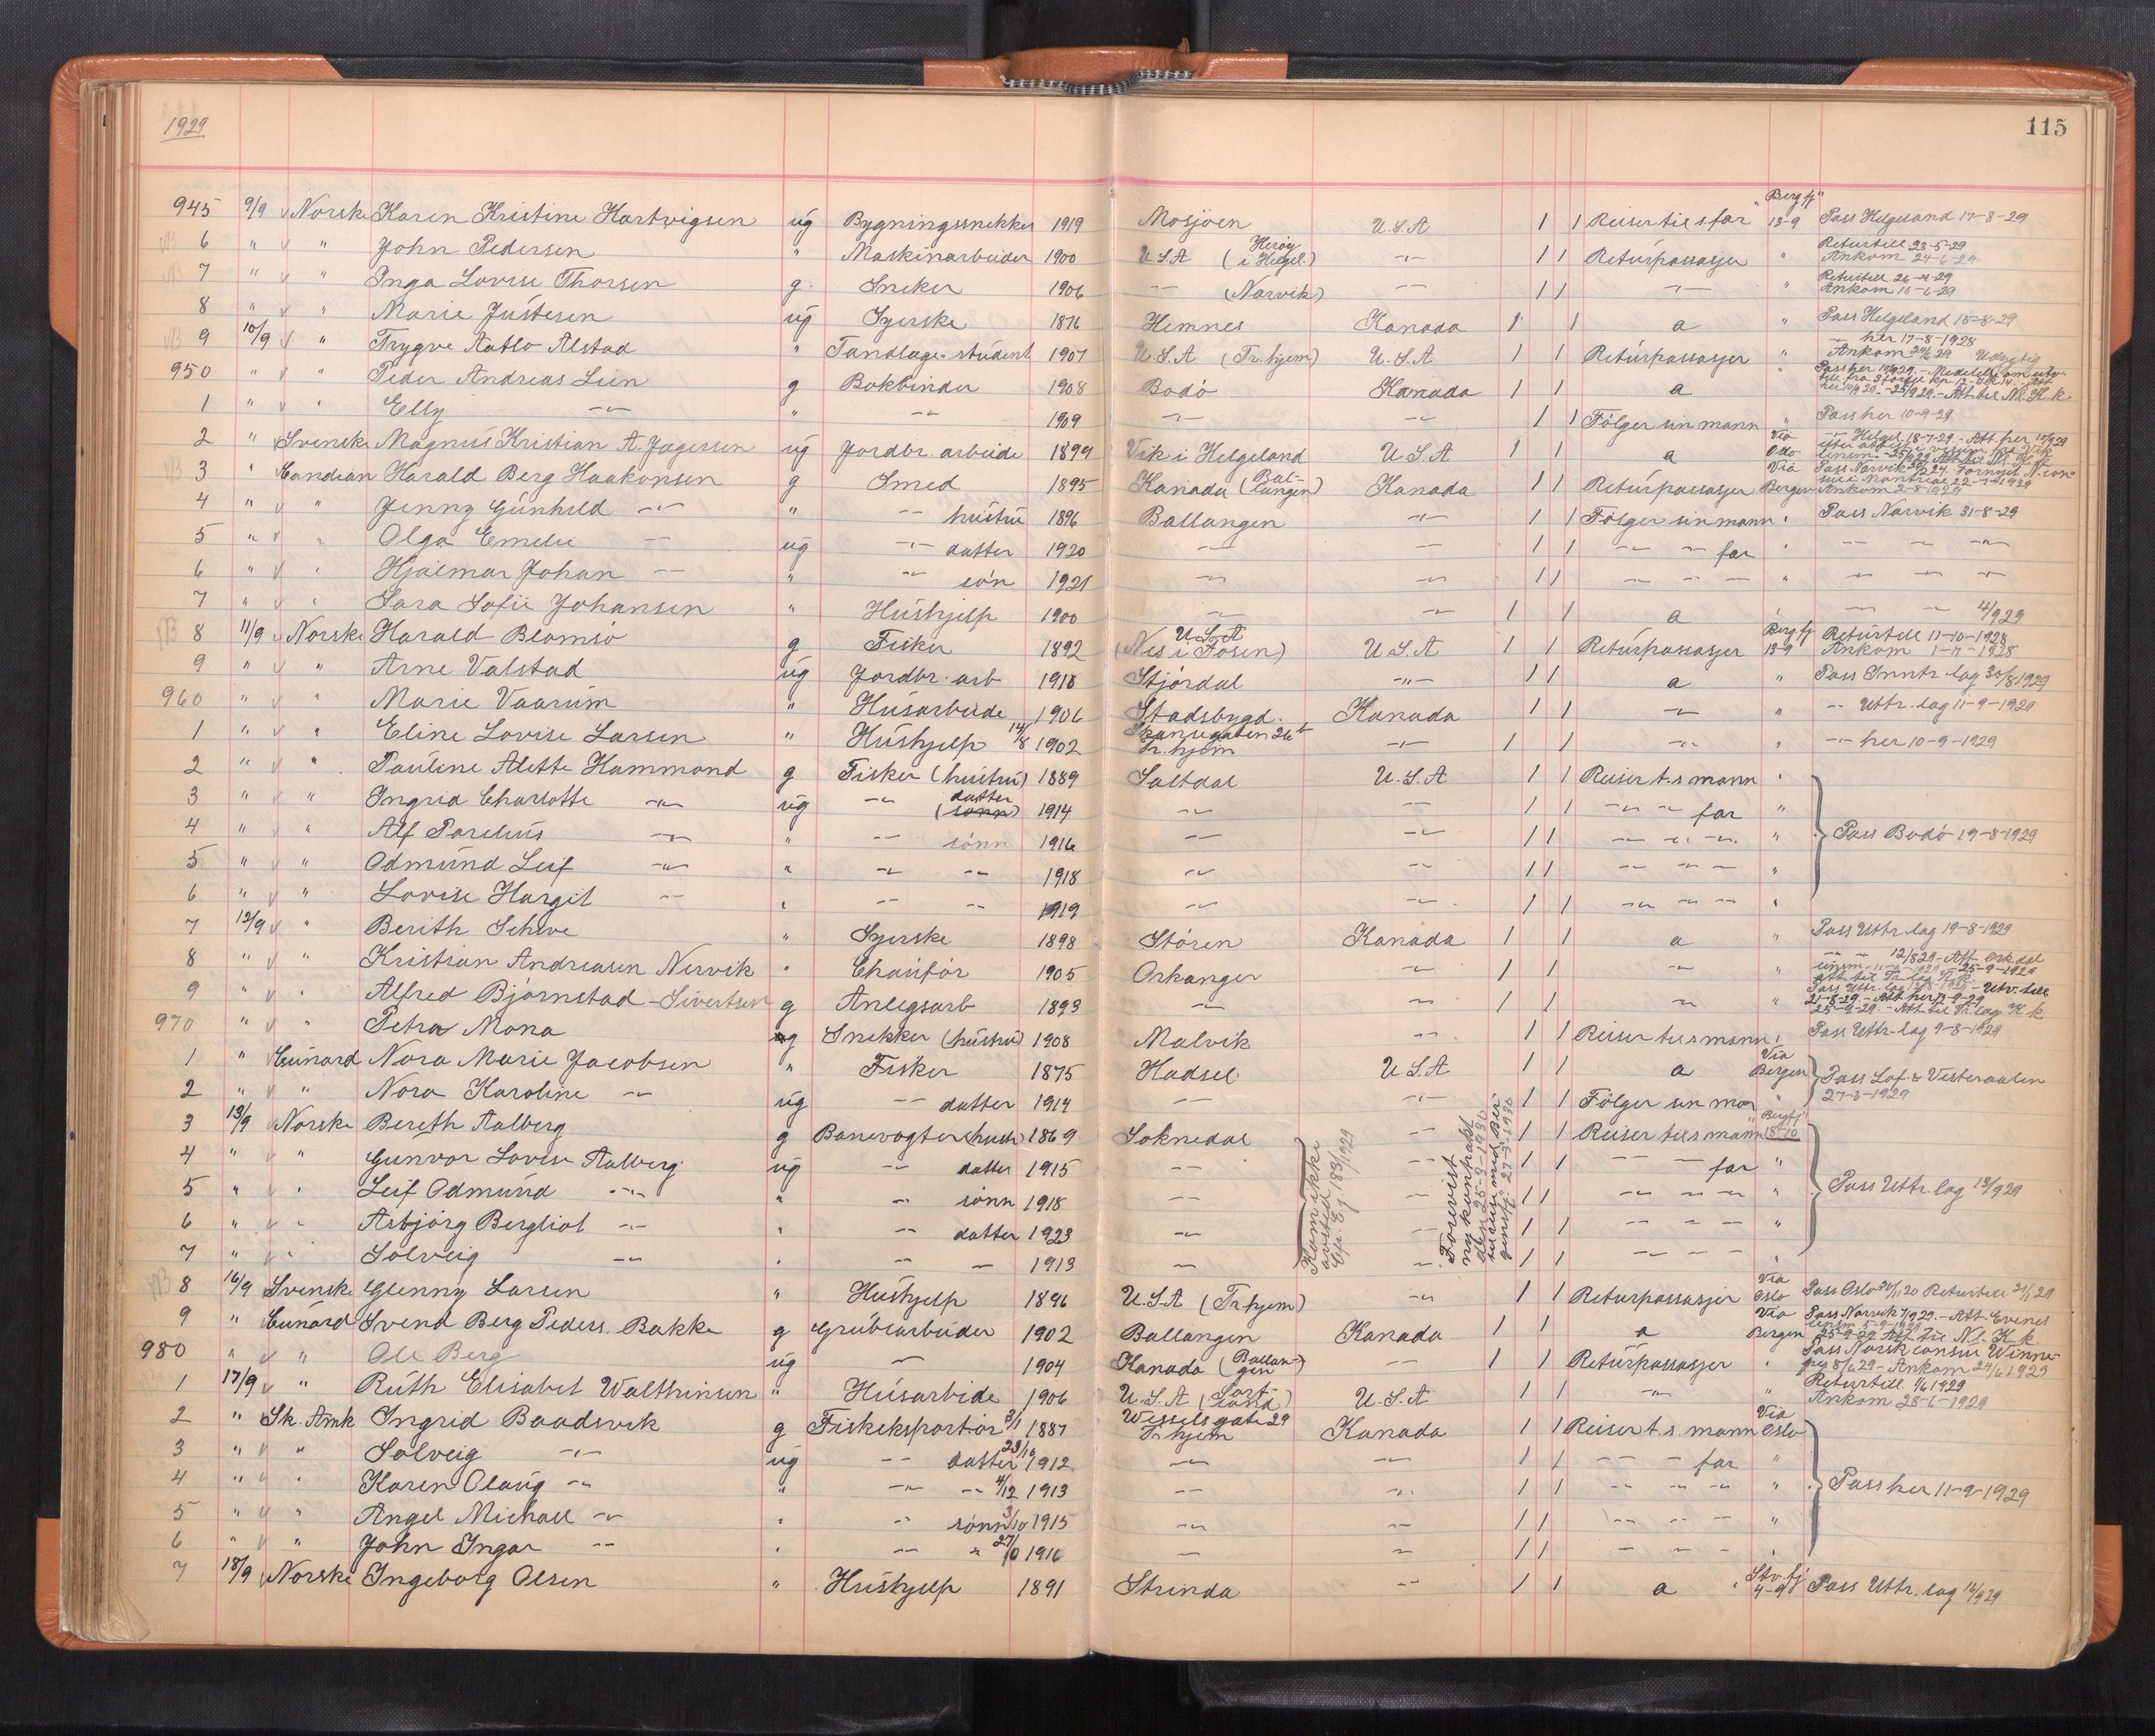 1929
115
945 9/9 v Norske Karen Kristine Hartvigsen ug Bygningssnekker 1919 Mosjöen U.S.A 1 1 Reiser til s far "Bergfj" 13-9 Pass Helgeland 17-8-29
6 " v " John Pedersen " Maskinarbeider 1900 U.S.A (Heröy i Helgel.) -"- 1 1 Returpassasjer " Returtill 23-5-29 Ankom 24-6-29
7 " " Inga Lovise Thorsen g. Sneker 1906 -"- (Narvik) -"- 1 1 -"- " Returtill 26-4-29 Ankom 18-6-29
8 " " Marie Justesen ug Syerske 1876 Hemnes Kanada 1 1 a " Pass Helgeland 15-8-29
9 10/9 v " Trygve Aatlo Alstad " Tandlæge-student 1907 U.S.A (Tr.hjem) U.S.A 1 1 Returpassasjer " -"- her 17-8-1928 Ankom 24/6 29
950 " v " Peder Andreas Lien g Bokbinder 1908 Bodö Kanada 1 1 a " Pass her 10/9 29
1 " v " Elly -"- " -"- 1909 -"- -"- 1 1 Fölger sin mann " Pass her 10-9-29
2 " Svenske Magnus Kristian A. Jægersen ug Jordbr. arbeide 1899 Vik i Helgeland U.S.A 1 1 a Via Oslo -"- Helgel. 18-7-29 - Att. her 10/9 29
3 " Candian Harald Berg Haakonsen g Smed 1895 Kanada (Ballangen) Kanada 1 1 Returpassasjer Via Bergen Pass Narvik Ankom 2-8-1929
4 " v " Jenny Gunhild -"- " -"- hustru 1896 Ballangen -"- 1 1 Fölger sin mann " Pass Narvik 31-8-29
5 " v " Olga Emelie -"- ug -"- datter 1920 -"- -"- 1 1 -"- -"- far " -"- -"- -"-
6 " v " Hjalmar Johan -"- " -"- sön 1921 -"- -"- 1 1 -"- -"- -"- " -"- -"- -"-
7 " v " Sara Sofie Johansen " Hushjelp 1900 -"- -"- 1 1 a " -"- -"- 4/9 29
8 11/9 v Norske Harald Blomsö g Fisker 1892 U.S.A (Nes i Fosen) U.S.A 1 1 Returpassasjer Bergfj 13-9 Returtill 11-10-1928 Ankom 1-11-1928
9 " v " Arne Valstad ug Jordbr. arb 1918 Stjördal -"- 1 1 a " Pass Inntr.lag 30/8 1929
960 " v " Marie Vaarum " Husarbeide 1906 Stadsbygd. Kanada 1 1 -"- " -"- Uttr.lag 11-9-1929
1 " v " Eline Lovise Larsen " Hushjelp 14/8 1902 Skansegaten 26 Tr.hjem -"- 1 1 -"- " -"- her 10-9-1929
2 " v " Pauline Alette Hammond g Fisker (hustru) 1889 Saltdal U.S.A 1 1 Reiser t.s mann "
3 " v " Ingrid Charlotte -"- ug -"- datter (sönn) 1914 -"- -"- 1 1 -"- -"- far "
4 " v " Alf Parelius -"- " -"- sönn 1916 -"- -"- 1 1 -"- -"- -"- " Pass Bodö 19-8-1929
5 " v " Odmund Leif -"- " -"- -"- 1918 -"- -"- 1 1 -"- -"- -"- "
6 " v " Lovise Margit -"- " -"- -"- 1919 -"- -"- 1 1 -"- -"- -"- "
7 12/9 v " Berith Schive " Syerske 1898 Stören Kanada 1 1 a " Pass Uttr.lag 19-8-1929
8 " v " Kristian Andreasen Nervik " Chauför 1905 Orkanger -"- 1 1 -"- " -"- -"- 12/8 29 - Att. Orkdal
9 " v " Alfred Björnstad-Sivertsen g Anlegsarb 1893 -"- -"- 1 1 -"- " 25-9-29 - Att. til Tr.lag K.k
970 " v " Petra Mona g Snekker (hustru) 1908 Malvik -"- 1 1 Reiser til s mann " Pass Uttr.lag 9-8-1929
1 " Cunard Nora Marie Jacobsen " Fisker 1875 Hadsel U.S.A 1 1 a Via Bergen Pass Lof. & Vesteraalen
2 " v " Nora Karoline -"- ug -"- datter 1914 -"- -"- 1 1 Fölger sin mor " 27-8-1929
3 13/9 Norske Bereth Aalberg g Banevogter (hustr) 1869 Soknedal -"- 1 1 Reiser til s mann "Bergfj" 18-10
4 " v " Gunvor Lovise Aalberg ug -"- datter 1915 -"- -"- 1 1 -"- -"- far "
5 " v " Leif Odmund -"- " -"- sönn 1918 -"- -"- 1 1 -"- -"- -"- " Pass Uttr.lag 13/9 29
6 " v " Asbjörg Bergliot -"- " -"- datter 1923 -"- -"- 1 1 -"- -"- -"- "
7 " v " Solveig -"- " -"- -"- 1913 -"- -"- 1 1 -"- -"- -"- "
Kom ikke avsted
Forevist ny kontrakt
8 16/9 Svenske Glenny Larsen " Hushjelp 1896 U.S.A (Tr.hjem) -"- 1 1 Returpassasjer Via Oslo Pass Oslo 30/11 20 Returtill
9 " Cunard Svend Berg Peders. Bakke g Grubearbeider 1902 Ballangen Kanada 1 1 a Via Bergen Pass Narvik 7/9 29. - Att. Evenes 25-9-29 Att. til Nl. K.k.
980 " v " Ole Berg ug -"- 1904 Kanada (Ballangen) -"- 1 1 Returpassasjer " Pass Norsk consul Winnepeg 8/6 29 - Ankom 24/6 1929
1 17/9 v " Ruth Elisabet Walthinsen " Husarbeide 1906 U.S.A (Sortland) U.S.A 1 1 -"- " Returtill 1/6 1929 Ankom 28-6-1929
2 " Sk. Amk Ingrid Baadsvik g Fiskeksportör 3/1 1887 Wesselsgate 29 Tr.hjem Kanada 1 1 Reiser t.s mann Via Oslo
3 " v " Solveig -"- ug -"- datter 23/10 1912 -"- -"- 1 1 -"- -"- far "
4 " v " Karen Olaug -"- " -"- -"- 4/12 1913 -"- -"- 1 1 -"- -"- -"- " Pass her 11-9-1929
5 " v " Angel Michael -"- " -"- sönn 3/10 1915 -"- -"- 1 1 -"- -"- -"- "
6 " v " John Ingar -"- " -"- -"- 27/10 1916 -"- -"- 1 1 -"- -"- -"- "
7 18/9 v Norske Ingeborg Olsen " Hushjelp 1891 Strinda -"- 1 1 a Stv.fj 4-9 Pass Uttr.lag 14/9 29